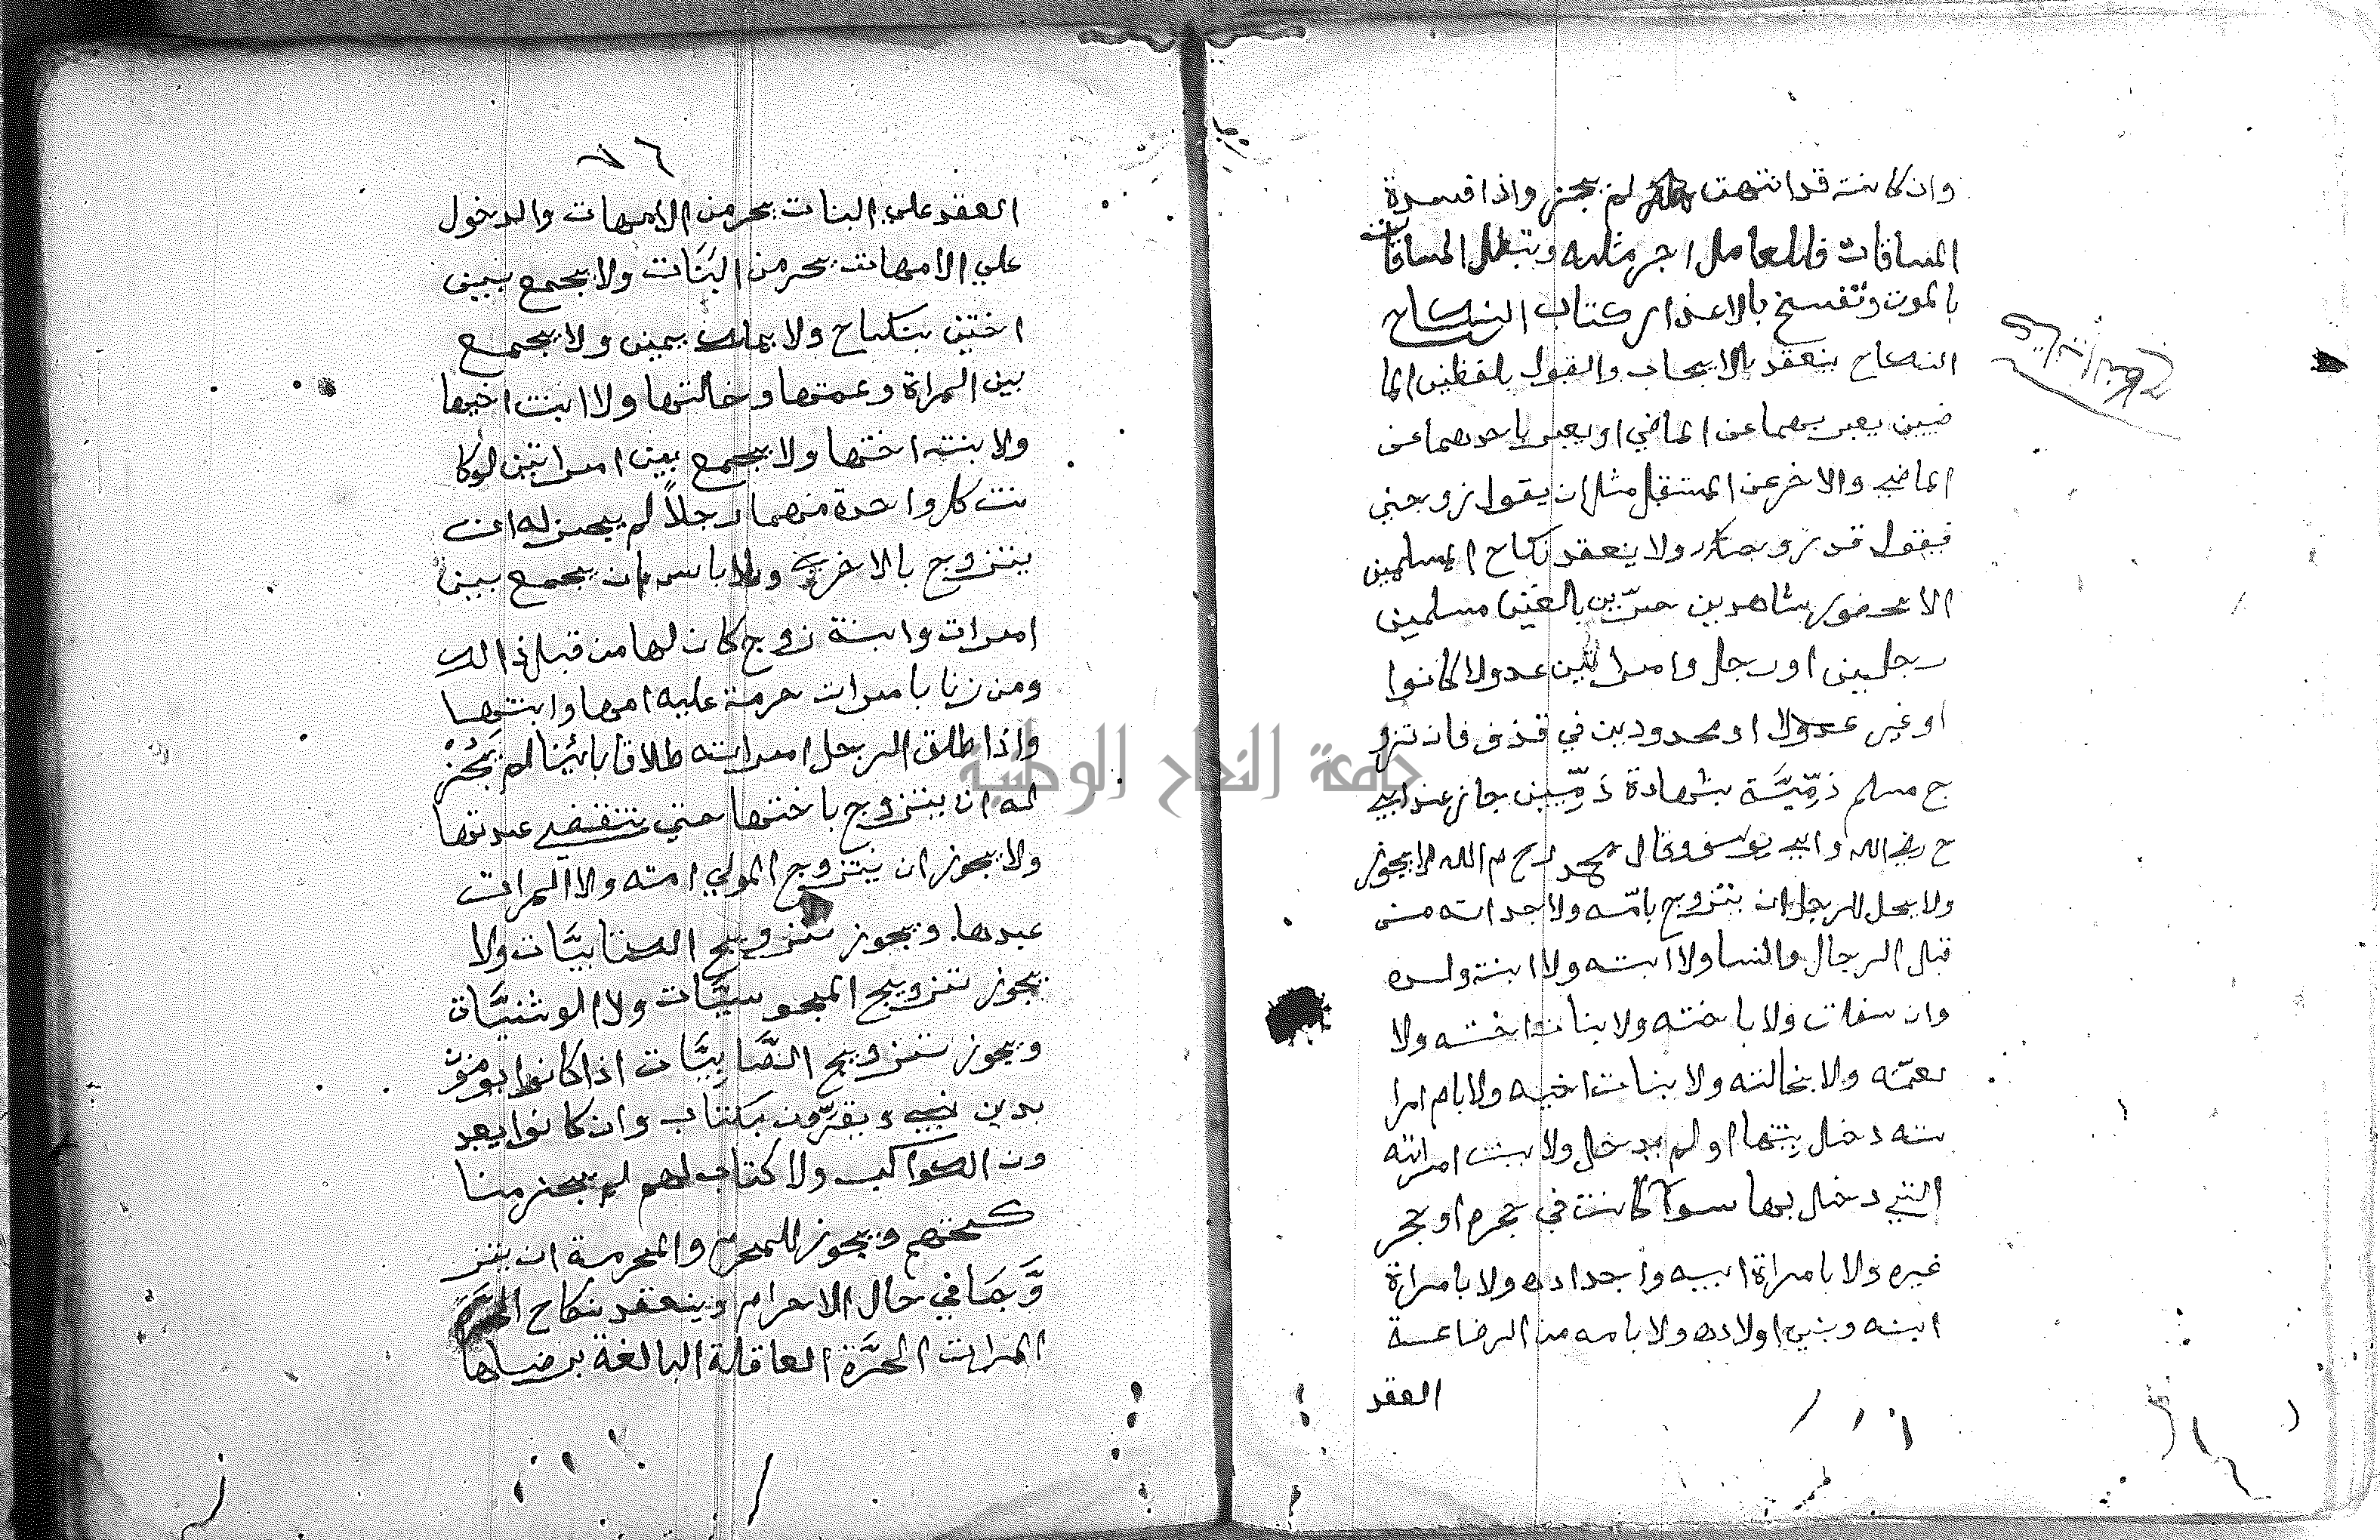 وان كانت قد انتهت لم يجز واذا فسدة
المساقات فللعامل اجر مثله وتبطل المساقات
بالموت وتفسخ بالاعذار كتاب النكاح
النكاح ينعقد بالايجاب والقبول بلفظين الما
ضيين يعبر بهما عن الماضي او يعبر باحدهما عن
الماضي والاخر عن المستقبل مثل ان يقول زوجني
فيقول قد زوجتكر ولا ينعقد نكاح المسلمين
الا بحضور شاهدين حرّين بالغين مسلمين
رجلين او رجل وامراتين عدولا كانوا
او غير عدولا او محدودين في قذف فان تزو
ج مسلم ذمِّيَّة بشهادة ذمِّيين جاز عند ابي
ح رضي الله وابي يوسف وقال محمد رحم الله لا يجوز
ولا يحل للرجل ان يتزوج بامّه ولا جداته من
قبل الرجال والنسا ولا ابنته ولا ابنة ولده
وان سفلت ولا باخته ولا بنات اخته ولا
بعمّته ولا بخالته ولا بنات اخيه ولا بام امرا
ته دخل بنتها او لم يدخل ولا ببنت امراته
التي دخل بها سوآ كانت في حجره او حجر
غيره ولا بامراة ابيه واجداده ولا بامراة
ابنه وبني اولاده ولا بامه من الرضاعة
العقد
٧٦
العقد علي البنات يحرمن الامهات والدخول
علي الامهات يحرمن البَنَات ولا يجمع بين
اختين بنكاح ولا بملك يمين ولا يجمع
بين المراة وعمتها وخالتها ولا ابنت اخيها
ولا بنت اختها ولا يجمع بين امراتين لوكا
نت كل واحدة منهما رجلاً لم يجز له ان
يتزوج بالاخري ولا باس ان يجمع بين
امرات وابنة زوج كان لها من قبل ذالك
ومن زنا بامرات حرمة عليه امها وابنتها
واذا طلق الرجل امراته طلاقا بائينا لم يَجُزْ
له ان يتزوج باختها حتي تنقضي عدتها
ولا يجوز ان يتزوج المولي امته ولا المرات
عبدها. ويجوز تزويج الكتابيَّات ولا
يجوز تزويج المجوسيَّات ولا الوثنيَّات
ويجوز تزويج الصَّابِيَّات اذا كانوا يومنو
بدين نبي ويقرّون بكتاب وان كانوا يعبد
ون الكواكب ولا كتاب لهم لم يجز منا
كحتهم ويجوز للمحرم والمحرمة ان يتز
وَّجا في حال الاحرام وينعقد نكاح
المرات الحرَّة العاقلة البالغة برضاها
جامعة النجاح الوطنية